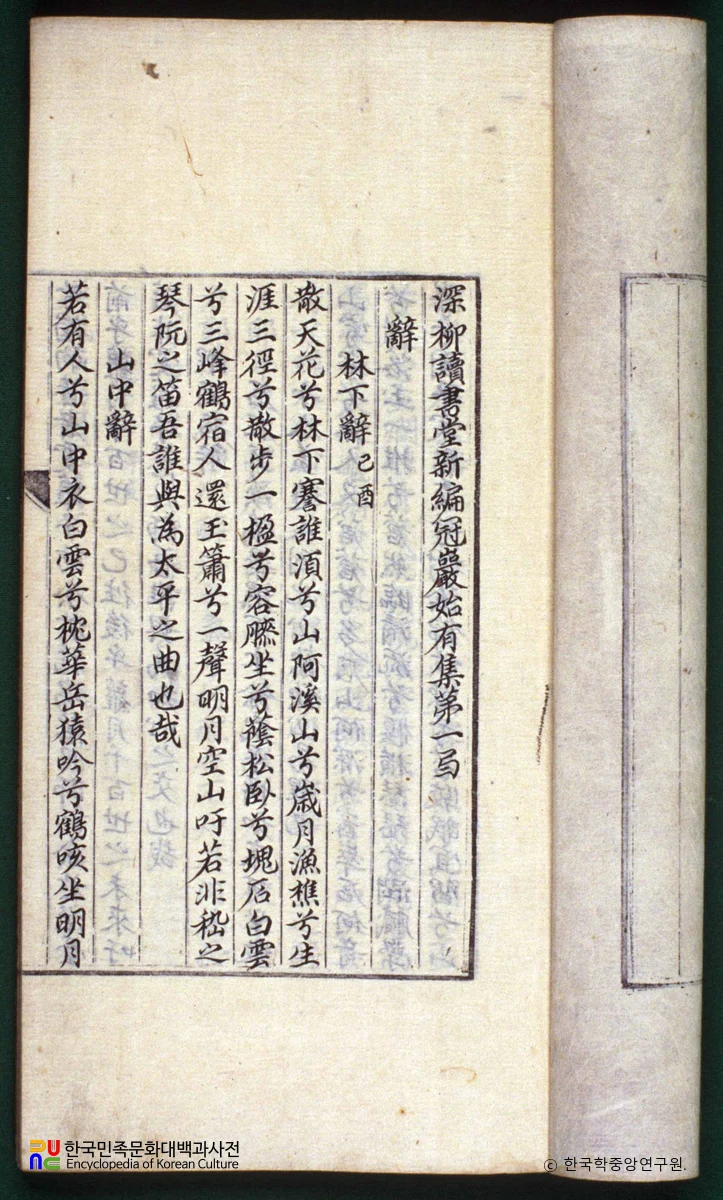 深柳讀書堂新編冠巖始有集第一局
辭
林下辭 己酉
散天花兮林下蹇誰湏兮山阿溪山兮歲月漁樵兮生
涯三徑兮散步一楹兮容膝坐兮蔭松臥兮塊石白雲
兮三峰鶴宿人還玉簫兮一聲明月空山吁若非嵇之
琴阮之笛吾誰與為太平之曲也哉
山中辭
若有人兮山中衣白雲兮枕華岳猿吟兮鶴咳坐明月
한국민족문화대백과사전
Encyclopedia of Korean Culture
© 한국학중앙연구원.